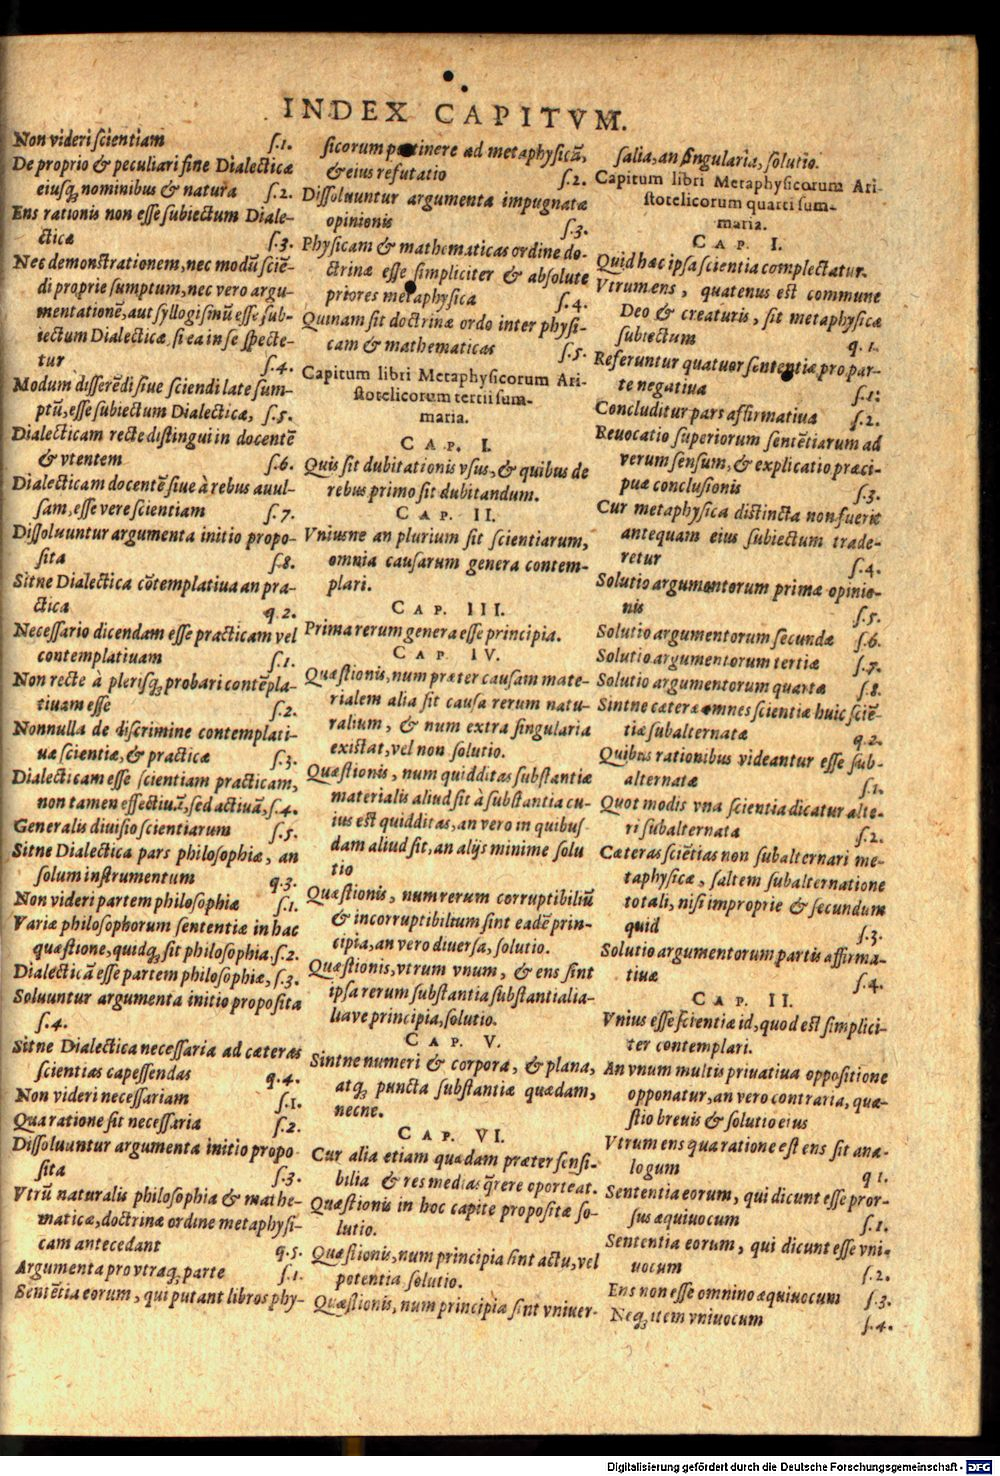 INDEX CAPITVM.
Non videri scientiam ſ.1.
De proprio & peculiari fine Dialecticæ
eiusq; nominibus & natura ſ.2.
Ens rationis non esse subiectum Diale-
cticæ ſ.3.
Nec demonstrationem, nec modũ sciẽ-
di proprie sumptum, nec vero argu-
mentationẽ, aut syllogismũ esse sub-
iectum Dialecticæ, si ea in se specte-
tur ſ.4.
Modum disserẽdi siue sciendi late sum-
ptũ, esse subiectum Dialecticæ, ſ.5.
Dialecticam recte distingui in docentẽ
& vtentem ſ.6.
Dialecticam docentẽ siue à rebus auul-
sam, esse vere scientiam ſ.7.
Dissoluuntur argumenta initio propo-
sita ſ.8.
Sitne Dialectica cõtemplatiua an pra-
ctica q.2.
Necessario dicendam esse practicam vel
contemplatiuam ſ.1.
Non recte à plerisq; probari contẽpla-
tiuam esse ſ.2.
Nonnulla de discrimine contemplati-
uæ scientiæ, & practicæ ſ.3.
Dialecticam esse scientiam practicam,
non tamen effectiuã, sed actiuã, ſ.4.
Generalis diuisio scientiarum ſ.5.
Sitne Dialectica pars philosophiæ, an
solum instrumentum q.3.
Non videri partem philosophiæ ſ.1.
Variæ philosophorum sententiæ in hac
quæstione, quidq; sit philosophia. ſ.2.
Dialecticã esse partem philosophiæ, ſ.3.
Soluuntur argumenta initio proposita
ſ.4.
Sitne Dialectica necessaria ad cæteras
scientias capessendas q.4.
Non videri necessariam ſ.1.
Qua ratione sit necessaria ſ.2.
Dissoluuntur argumenta initio propo
sita ſ.3.
Vtrũ naturalis philosophia & mathe-
maticæ, doctrinæ ordine metaphysi-
cam antecedant q.5.
Argumenta pro vtraq; parte ſ.1.
Sentẽtia eorum, qui putant libros phy-
sicorum pertinere ad metaphysicã,
& eius refutatio ſ.2.
Dissoluuntur argumenta impugnatæ
opinionis ſ.3.
Physicam & mathematicas ordine do-
ctrinæ esse simpliciter & absolute
priores metaphysica ſ.4.
Quinam sit doctrinæ ordo inter physi-
cam & mathematicas ſ.5.
Capitum libri Metaphysicorum Ari-
stotelicorum tertii sum-
maria.
CAP. I.
Quis sit dubitationis vsus, & quibus de
rebus primo sit dubitandum.
CAP. II.
Vniusne an plurium sit scientiarum,
omnia causarum genera contem-
plari.
CAP. III.
Prima rerum genera esse principia.
CAP. IV.
Quæstionis, num præter causam mate-
rialem alia sit causa rerum natu-
ralium, & num extra singularia
existat, vel non solutio.
Quæstionis, num quidditas substantiæ
materialis aliud sit à substantia cu-
ius est quidditas, an vero in quibus-
dam aliud sit, an alijs minime solu
tio
Quæstionis, num rerum corruptibiliũ
& incorruptibilium sint eadẽ prin-
cipia, an vero diuersa, solutio.
Quæstionis, vtrum vnum, & ens sint
ipsa rerum substantia substantialia-
liave principia, solutio.
CAP. V.
Sintne numeri & corpora, & plana,
atq; puncta substantiæ quædam,
necne.
CAP. VI.
Cur alia etiam quædam præter sensi-
bilia & res medias q̃rere oporteat.
Quæstionis in hoc capite propositæ so-
lutio.
Quæstionis, num principia sint actu, vel
potentia solutio.
Quæstionis, num principia sint vniuer-
salia, an singularia, solutio.
Capitum libri Metaphysicorum Ari-
stotelicorum quarti sum-
maria.
CAP. I.
Quid hæc ipsa scientia complectatur.
Vtrum ens, quatenus est commune
Deo & creaturis, sit metaphysicæ
subiectum q.1.
Referuntur quatuor sententiæ pro par-
te negatiua ſ.1.
Concluditur pars affirmatiua ſ.2.
Reuocatio superiorum sentẽtiarum ad
verum sensum, & explicatio præci-
puæ conclusionis ſ.3.
Cur metaphysica distincta non fuerit
antequam eius subiectum trade-
retur ſ.4.
Solutio argumentorum primæ opinio-
nis ſ.5.
Solutio argumentorum secundæ ſ.6.
Solutio argumentorum tertiæ ſ.7.
Solutio argumentorum quartæ ſ.8.
Sintne cæteræ omnes scientiæ huic sciẽ-
tiæ subalternatæ q.2.
Quibus rationibus videantur esse sub-
alternatæ ſ.1.
Quot modis vna scientia dicatur alte-
ri subalternata ſ.2.
Cæteras sciẽtias non subalternari me-
taphysicæ, saltem subalternatione
totali, nisi improprie & secundum
quid ſ.3.
Solutio argumentorum partis affirma-
tiuæ ſ.4.
CAP. II.
Vnius esse scientiæ id, quod est simplici-
ter contemplari.
An vnum multis priuatiua oppositione
opponatur, an vero contraria, quæ-
stio breuis & solutio eius
Vtrum ens qua ratione est ens sit ana-
logum q 1.
Sententia eorum, qui dicunt esse pror-
sus æquiuocum ſ.1.
Sententia eorum, qui dicunt esse vni-
uocum ſ.2.
Ens non esse omnino æquiuocum ſ.3.
Neq; item vniuocum ſ.4.
Digitalisierung gefördert durch die Deutsche Forschungsgemeinschaft - DFG